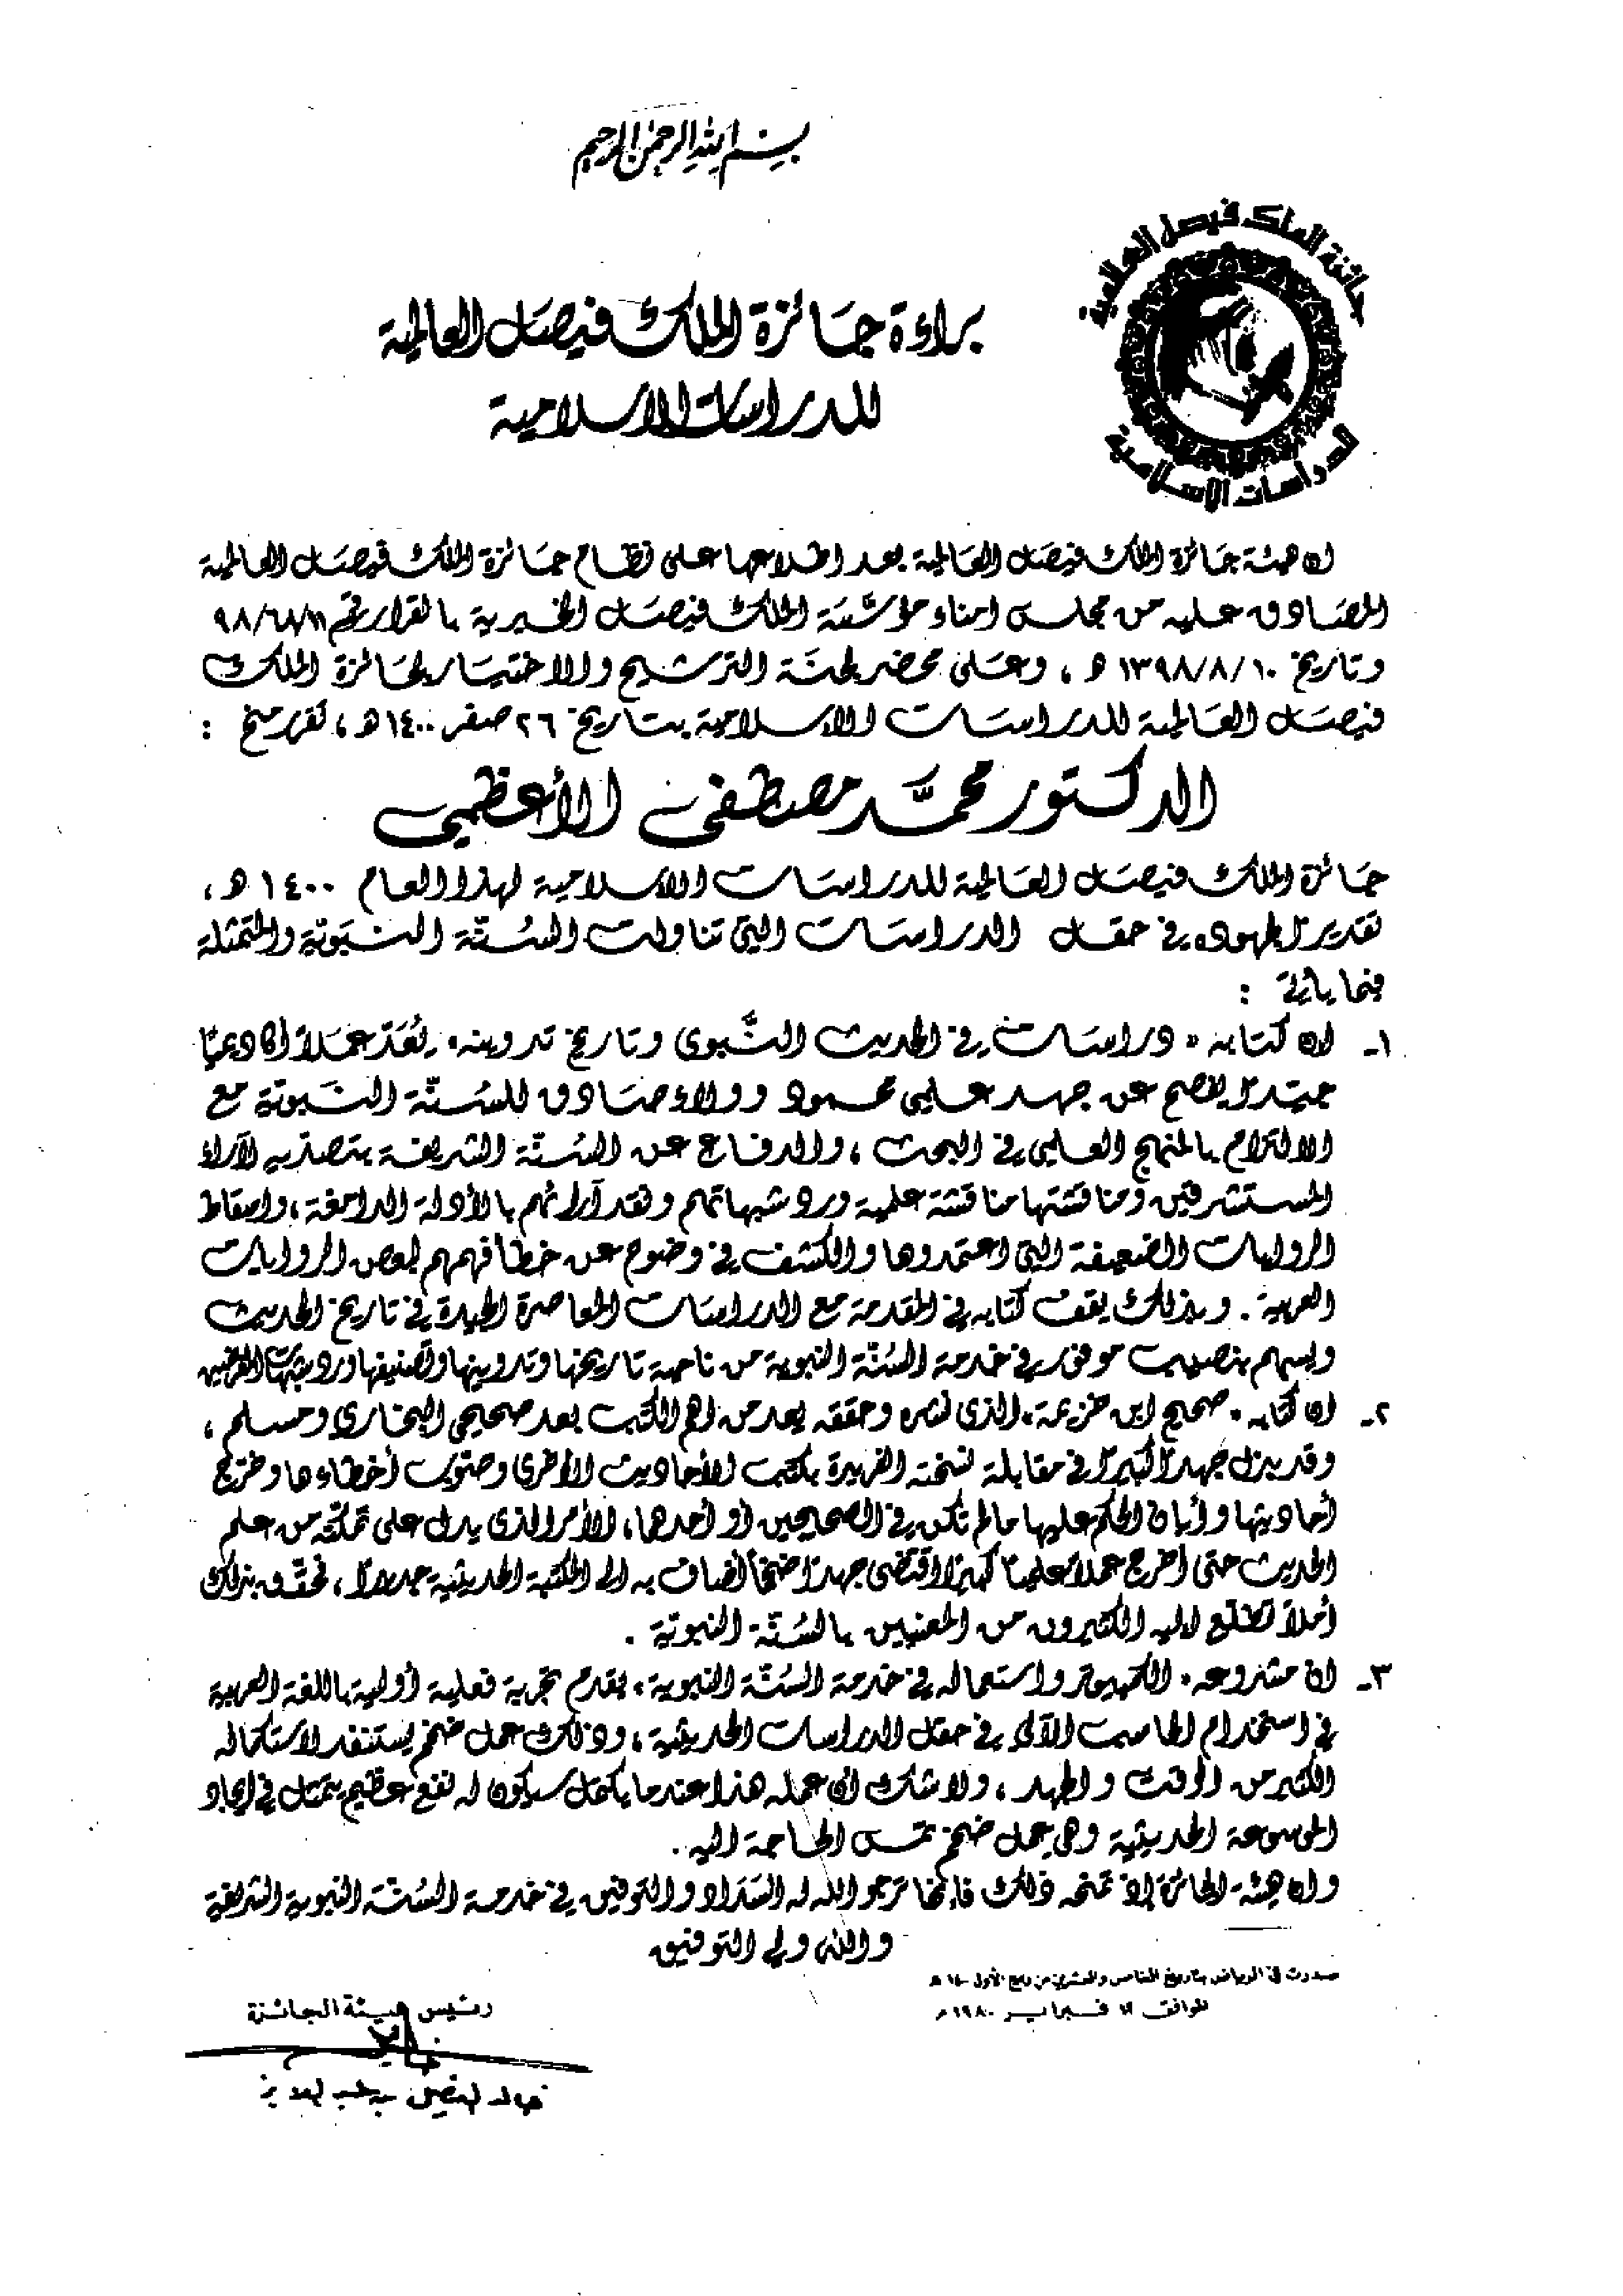 بسم الله الرحمن الرحيم
جائزة الملك فيصل العالمية
للدراسات الإسلامية
براءة جائزة الملك فيصل العالمية
للدراسات الاسلامية
ان هيئة جائزة الملك فيصل العالمية بعد اطلاعها على نظام جائزة الملك فيصل العالمية
المصادق عليه من مجلس امناء مؤسسة الملك فيصل الخيرية بالقرار رقم
وتاريخ ١٣٩٨/٨/١٠ ه ، وعلى محضر لجنة الترشيح والاختيار لجائزة الملك
فيصل العالمية للدراسات الاسلامية بتاريخ ٢٦ صفر ١٤٠٠ ه ، تقرر منح :
الدكتور محمد مصطفى الأعظمي
جائزة الملك فيصل العالمية للدراسات الاسلامية لهذا العام ١٤٠٠ ه ،
تقديرًا لجهوده في حقل الدراسات التي تناولت السنّة النبوية والمتمثلة
فيما يأتي :
١- ان كتابه « دراسات في الحديث النبوي وتاريخ تدوينه » يُعَدّ عملاً أكاديميًا
جيّدًا يفصح عن جهد علمي محمود وولاء صادق للسنّة النبوية مع
الالتزام بالمنهج العلمي في البحث ، والدفاع عن السنّة الشريفة بتصدّيه لآراء
المستشرقين ومناقشتها مناقشة علمية ورد شبهاتهم ونقد آرائهم بالأدلة الدامغة ، واسقاط
الروايات الضعيفة التي اعتمدوها والكشف في وضوح عن خطأ فهمهم لبعض الروايات
العربية . وبذلك يقف كتابه في المقدمة مع الدراسات المعاصرة الجيدة في تاريخ الحديث
ويسهم بنصيب موفور في خدمة السنّة النبوية من ناحية تاريخها وتدوينها وتصنيفها ورد شبهات المغرضين
٢- ان كتابه « صحيح ابن خزيمة » الذي نشره وحققه يعد من اهم الكتب بعد صحيحي البخاري ومسلم ،
وقد بذل جهدًا كبيرًا في مقابلة نسخته الفريدة بكتب الأحاديث الأخرى وصوّب أخطاءها وخرّج
أحاديثها وأبان الحكم عليها ما لم تكن في الصحيحين أو أحدهما ، الأمر الذي يدل على تمكّنه من علم
الحديث حتى أخرج عملاً علميًا كبيرًا اقتضى جهدًا ضخمًا أضاف به الى المكتبة الحديثية جديدًا ، فحقّق بذلك
أملاً تطلّع اليه الكثيرون من المعنيين بالسنّة النبوية .
٣- ان مشروعه « الكمبيوتر واستعماله في خدمة السنّة النبوية » يقدم تجربة فعلية أولية باللغة العربية
في استخدام الحاسب الآلي في حقل الدراسات الحديثية ، وذلك عمل ضخم يستنفد لاستكماله
الكثير من الوقت والجهد ، ولا شك ان عمله هذا عندما يكمل سيكون له نفع عظيم يتمثل في ايجاد
الموسوعة الحديثية وهي عمل ضخم تمس الحاجة اليه .
وان هيئة الجائزة إذ تمنحه ذلك فانها ترجو الله له السّداد والتوفيق في خدمة السنّة النبوية الشريفة
والله ولي التوفيق
صدرت في الرياض بتاريخ الخامس والعشرين من ربيع الأول ١٤٠٠ هـ
الموافق ١١ فبراير ١٩٨٠ م
رئيس هيئة الجائزة
خالد الفيصل بن عبد العزيز